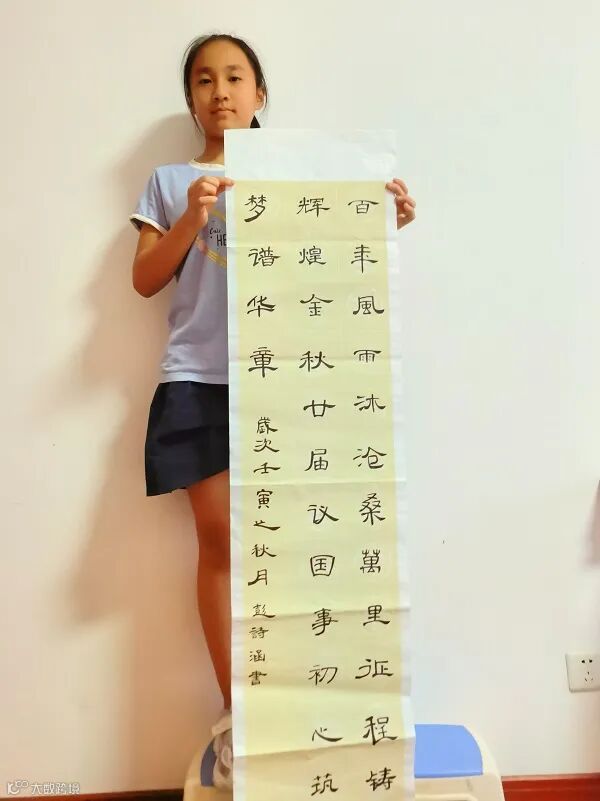 百年風雨沐沧桑萬里征程铸
辉煌金秋廿届议国事初心筑
梦谱华章
歲次壬寅之秋月彭詩涵書
HE
大数跨境